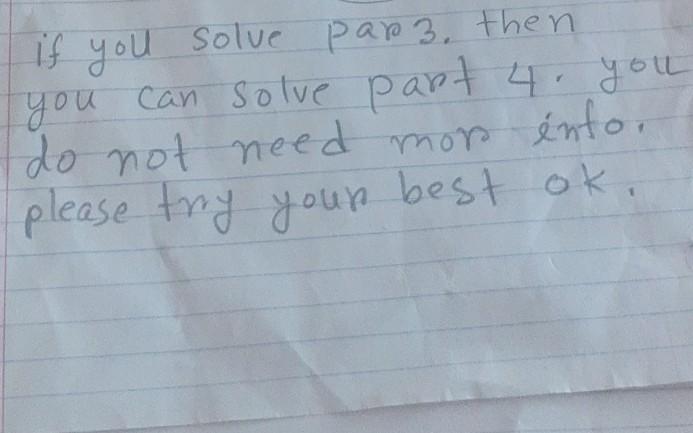 if you solve par 3. then
you can solve part 4. you
do not need mor info.
please try your best ok.